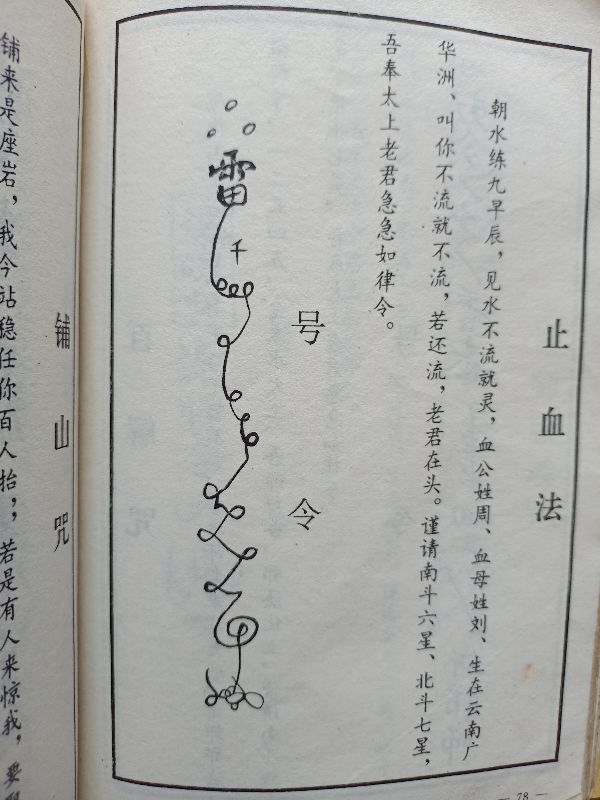 止血法
朝水练九早辰，见水不流就灵，血公姓周、血母姓刘、生在云南广
华洲、叫你不流就不流，若还流，老君在头。谨请南斗六星、北斗七星，
吾奉太上老君急急如律令。
号令
雷
千
— 78 —
铺山咒
铺来是座岩，我今站稳任你百人抬，，若是有人来惊我，要